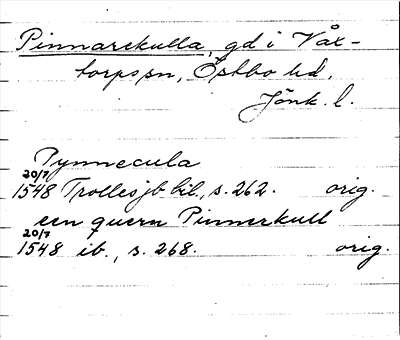 Pinnarekulla, gd i Våx-
torps sn, Östbo hd,
Jönk. l.
Pynnecula
20/7
1548 Trolles jb bil., s. 262. orig.
een quern Pinnerkull
20/7
1548 ib., s. 268. orig.